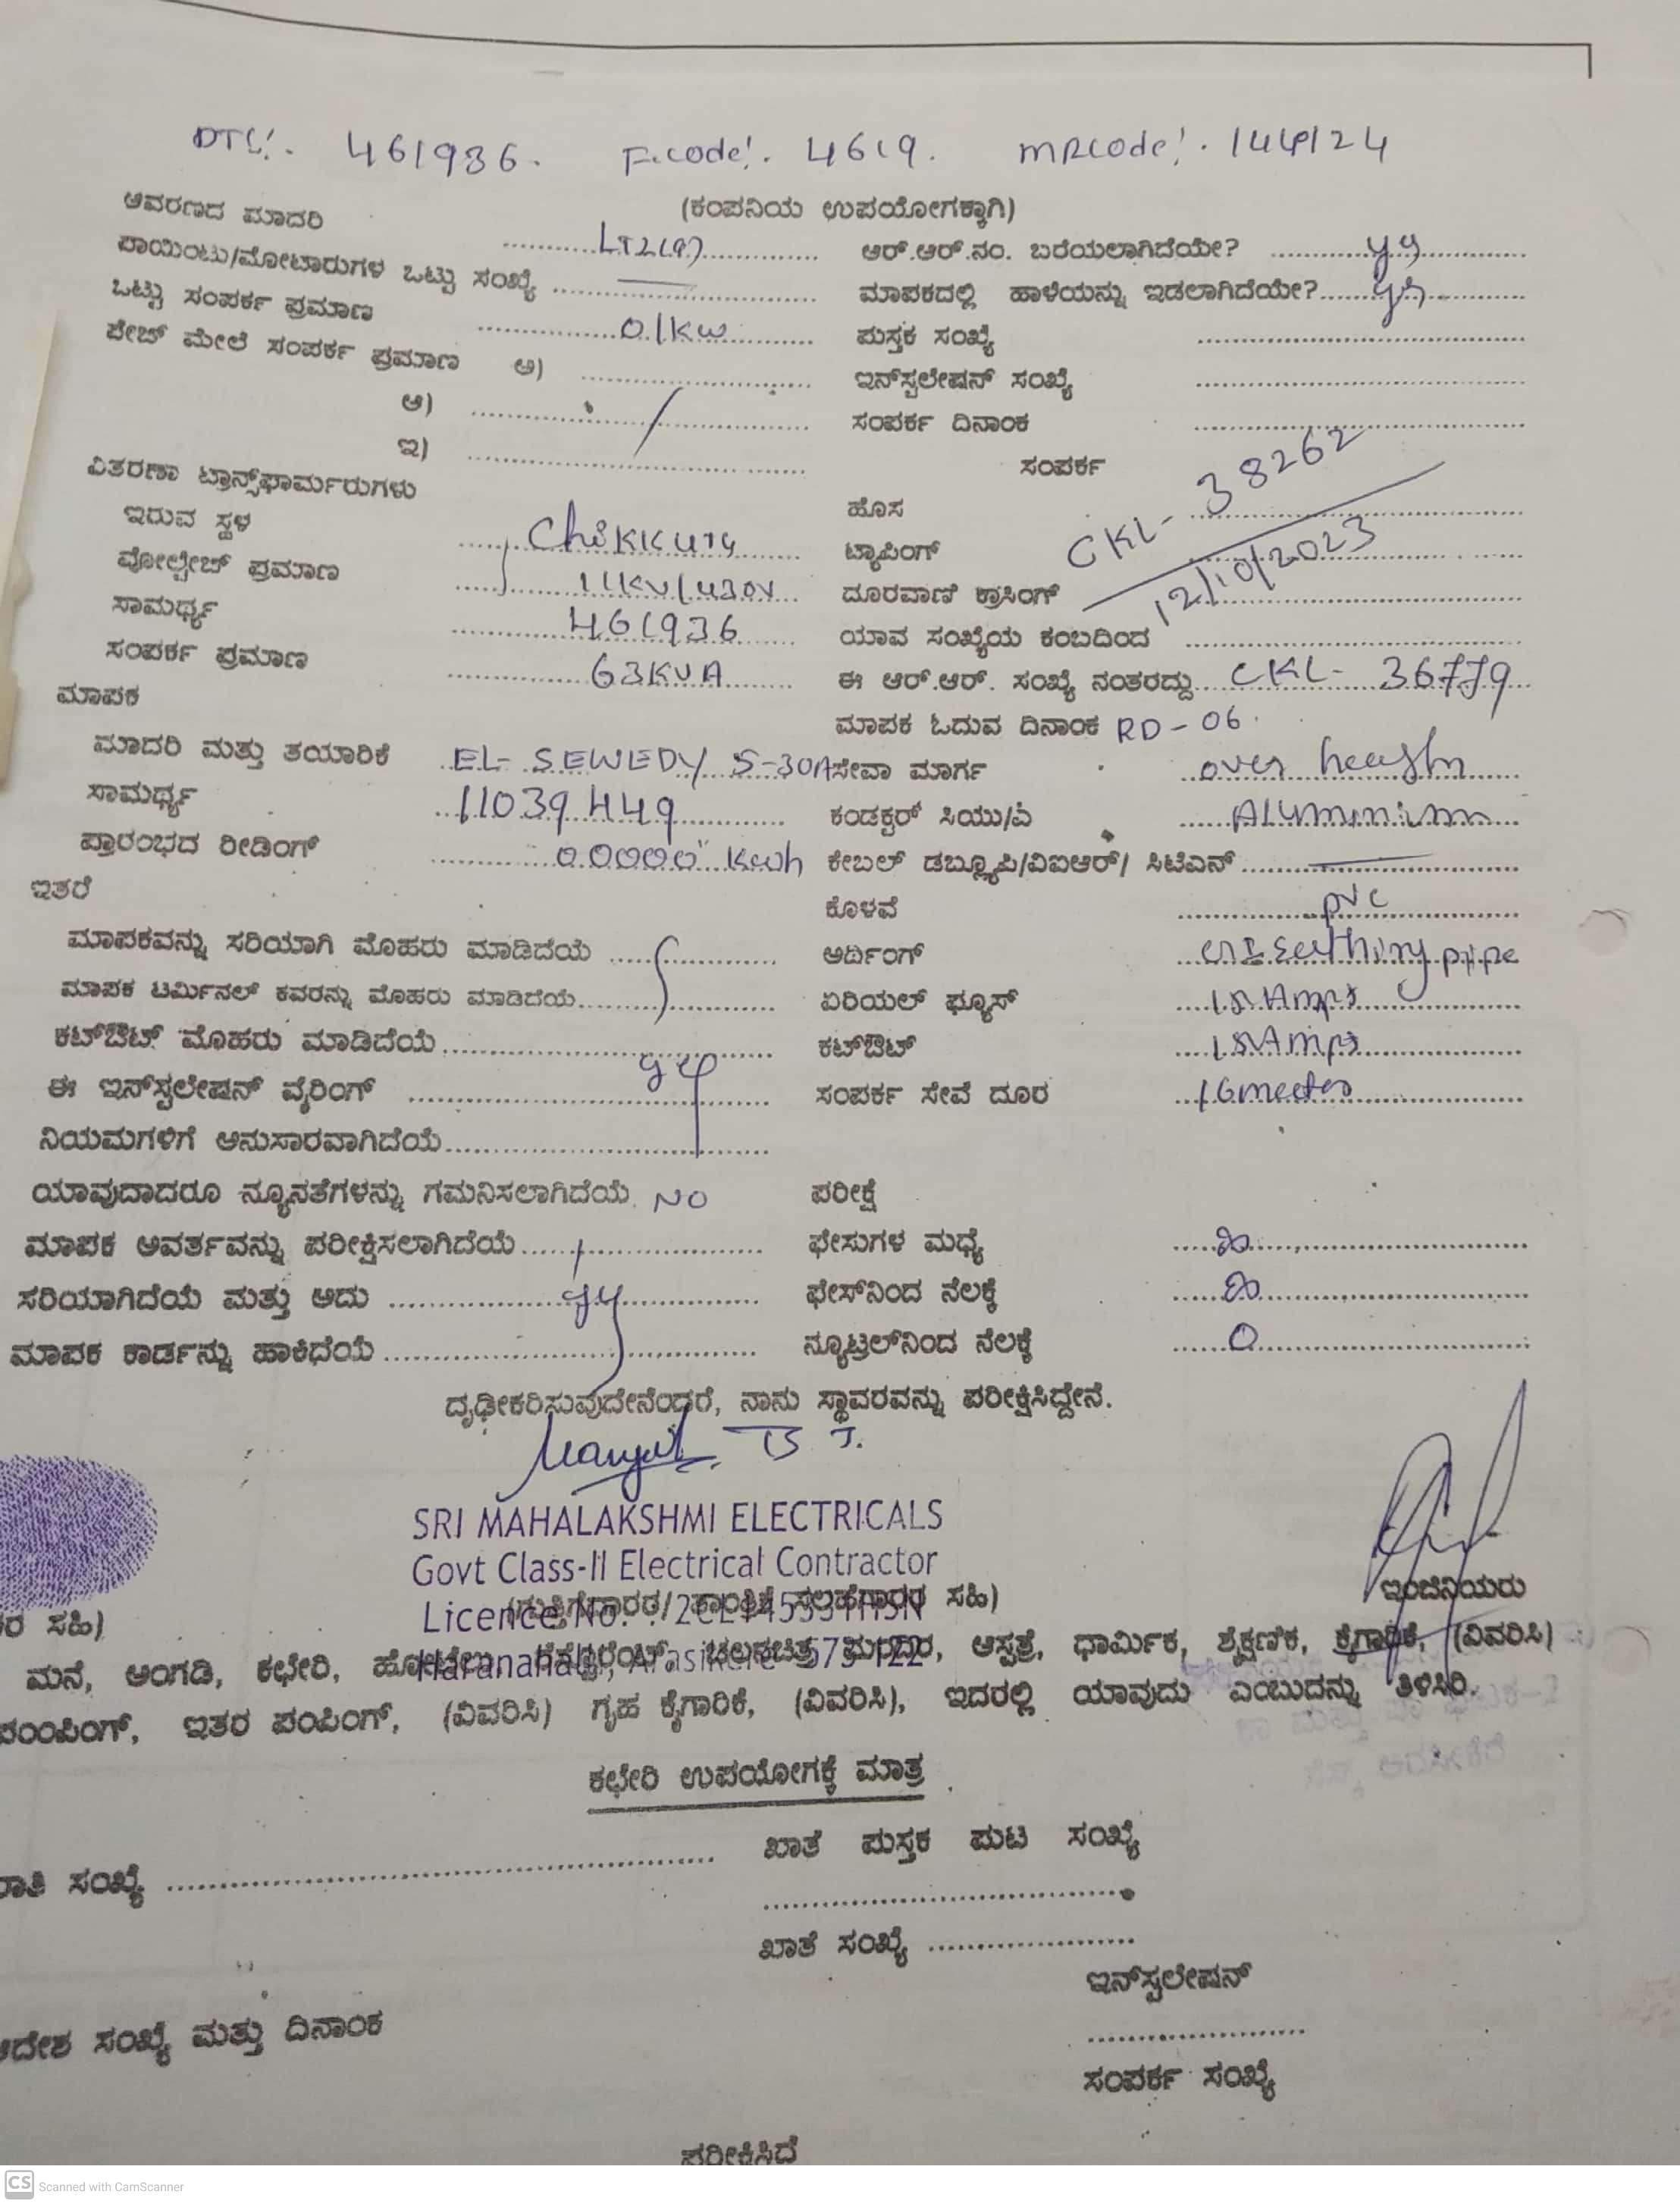 DTC:. 461936. F.code:. 4619. MRcode:. 144124
(ಕಂಪನಿಯ ಉಪಯೋಗಕ್ಕಾಗಿ)
ಆವರಣದ ಮಾದರಿ LT2(a) ಆರ್.ಆರ್.ನಂ. ಬರೆಯಲಾಗಿದೆಯೇ? yes
ಪಾಯಿಂಟು/ಮೋಟಾರುಗಳ ಒಟ್ಟು ಸಂಖ್ಯೆ ಮಾಪಕದಲ್ಲಿ ಹಾಳೆಯನ್ನು ಇಡಲಾಗಿದೆಯೇ? yes
ಒಟ್ಟು ಸಂಪರ್ಕ ಪ್ರಮಾಣ 01KW ಪುಸ್ತಕ ಸಂಖ್ಯೆ
ಪೇಜ್ ಮೇಲೆ ಸಂಪರ್ಕ ಪ್ರಮಾಣ ಅ) ಇನ್‌ಸ್ಟಲೇಷನ್ ಸಂಖ್ಯೆ
ಆ) ಸಂಪರ್ಕ ದಿನಾಂಕ
ಇ) ಸಂಪರ್ಕ
ವಿತರಣಾ ಟ್ರಾನ್ಸ್‌ಫಾರ್ಮರುಗಳು CKL- 38262
ಇರುವ ಸ್ಥಳ ಹೊಸ 12/10/2023
ವೋಲ್ಟೇಜ್ ಪ್ರಮಾಣ 11KV/430V ಟ್ಯಾಪಿಂಗ್
ಸಾಮರ್ಥ್ಯ 461936 ದೂರವಾಣಿ ಕ್ರಾಸಿಂಗ್
ಸಂಪರ್ಕ ಪ್ರಮಾಣ 63KVA ಯಾವ ಸಂಖ್ಯೆಯ ಕಂಬದಿಂದ
ಮಾಪಕ ಈ ಆರ್.ಆರ್. ಸಂಖ್ಯೆ ನಂತರದ್ದು CKL- 36779
ಮಾಪಕ ಓದುವ ದಿನಾಂಕ RD-06.
ಮಾದರಿ ಮತ್ತು ತಯಾರಿಕೆ EL- SEWEDY 5-30A ಸೇವಾ ಮಾರ್ಗ over
ಸಾಮರ್ಥ್ಯ 11039449 ಕಂಡಕ್ಟರ್ ಸಿಯು/ಎ Aluminium
ಪ್ರಾರಂಭದ ರೀಡಿಂಗ್ 00000 Kwh ಕೇಬಲ್ ಡಬ್ಲ್ಯೂಪಿ/ವಿಐಆರ್/ ಸಿಟಿಎನ್
ಇತರೆ ಕೊಳವೆ pvc
ಮಾಪಕವನ್ನು ಸರಿಯಾಗಿ ಮೊಹರು ಮಾಡಿದೆಯೆ ಆರ್ಥಿಂಗ್ pipe
ಮಾಪಕ ಟರ್ಮಿನಲ್ ಕವರನ್ನು ಮೊಹರು ಮಾಡಿದೆಯೆ ಏರಿಯಲ್ ಫ್ಯೂಸ್ 15 Amps
ಕಟ್‌ಔಟ್ ಮೊಹರು ಮಾಡಿದೆಯೆ ಕಟ್‌ಔಟ್ 15 Amps
ಈ ಇನ್‌ಸ್ಟಲೇಷನ್ ವೈರಿಂಗ್ yes ಸಂಪರ್ಕ ಸೇವೆ ದೂರ 16 meeters
ನಿಯಮಗಳಿಗೆ ಅನುಸಾರವಾಗಿದೆಯೆ
ಯಾವುದಾದರೂ ನ್ಯೂನತೆಗಳನ್ನು ಗಮನಿಸಲಾಗಿದೆಯೆ NO ಪರೀಕ್ಷೆ
ಮಾಪಕ ಆವರ್ತವನ್ನು ಪರೀಕ್ಷಿಸಲಾಗಿದೆಯೆ ಫೇಸುಗಳ ಮಧ್ಯೆ ∞
ಸರಿಯಾಗಿದೆಯೆ ಮತ್ತು ಅದು yes ಫೇಸ್‌ನಿಂದ ನೆಲಕ್ಕೆ ∞
ಮಾಪಕ ಕಾರ್ಡನ್ನು ಹಾಕಿದೆಯೆ ನ್ಯೂಟ್ರಲ್‌ನಿಂದ ನೆಲಕ್ಕೆ 0
ದೃಢೀಕರಿಸುವುದೇನೆಂದರೆ, ನಾನು ಸ್ಥಾವರವನ್ನು ಪರೀಕ್ಷಿಸಿದ್ದೇನೆ.
SRI MAHALAKSHMI ELECTRICALS
Govt Class-II Electrical Contractor
ಇಂಜಿನಿಯರು
Licence No. ಸಹಿ)
ರ ಸಹಿ)
ಮನೆ, ಅಂಗಡಿ, ಕಛೇರಿ, ಆಸ್ಪತ್ರೆ, ಧಾರ್ಮಿಕ, ಶೈಕ್ಷಣಿಕ, ಕೈಗಾರಿಕೆ, (ವಿವರಿಸಿ)
ಪಂಂಪಿಂಗ್, ಇತರ ಪಂಪಿಂಗ್, (ವಿವರಿಸಿ) ಗೃಹ ಕೈಗಾರಿಕೆ, (ವಿವರಿಸಿ), ಇದರಲ್ಲಿ ಯಾವುದು ಎಂಬುದನ್ನು ತಿಳಿಸಿರಿ.
ಕಛೇರಿ ಉಪಯೋಗಕ್ಕೆ ಮಾತ್ರ
ಖಾತೆ ಪುಸ್ತಕ ಪುಟ ಸಂಖ್ಯೆ
ರಾತಿ ಸಂಖ್ಯೆ
ಖಾತೆ ಸಂಖ್ಯೆ
ಇನ್‌ಸ್ಟಲೇಷನ್
ಆದೇಶ ಸಂಖ್ಯೆ ಮತ್ತು ದಿನಾಂಕ
ಸಂಪರ್ಕ ಸಂಖ್ಯೆ
ಪರೀಕ್ಷಿಸಿದೆ
CS Scanned with CamScanner